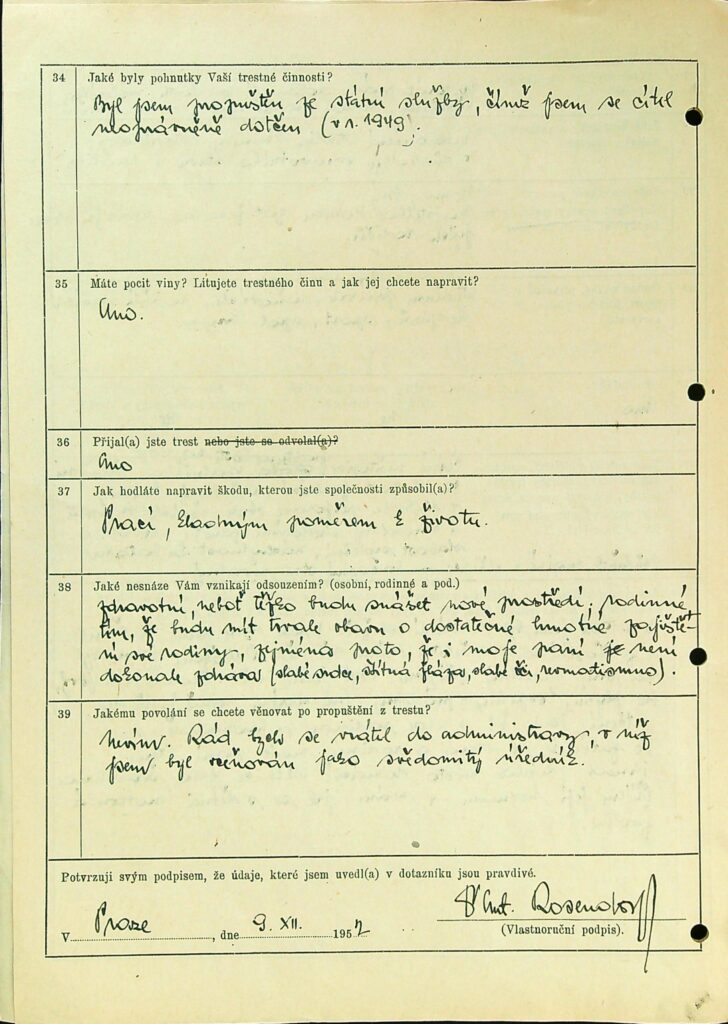 34 Jaké byly pohnutky Vaší trestné činnosti?
Byl jsem propuštěn ze státní služby, čímž jsem se cítil
neoprávněně dotčen (v r. 1949).
35 Máte pocit viny? Litujete trestného činu a jak jej chcete napravit?
Ano.
36 Přijal(a) jste trest nebo jste se odvolal(a)?
Ano
37 Jak hodláte napravit škodu, kterou jste společnosti způsobil(a)?
Prací, kladným poměrem k životu.
38 Jaké nesnáze Vám vznikají odsouzením? (osobní, rodinné a pod.)
zdravotní, neboť těžko budu snášet nové prostředí; rodinné
tím, že budu mít trvale obavu o dostatečné hmotné zajiště-
ní své rodiny, zejména proto, že i moje paní je není
dokonale zdráva (slabé srdce, štítná žláza, slabé oči, revmatismus).
39 Jakému povolání se chcete věnovat po propuštění z trestu?
Nevím. Rád bych se vrátil do administrativy, v níž
jsem byl oceňován jako svědomitý úředník.
Potvrzuji svým podpisem, že údaje, které jsem uvedl(a) v dotazníku jsou pravdivé.
V Praze, dne 9. XII. 1957
Ant. Rosendorf
(Vlastnoruční podpis).